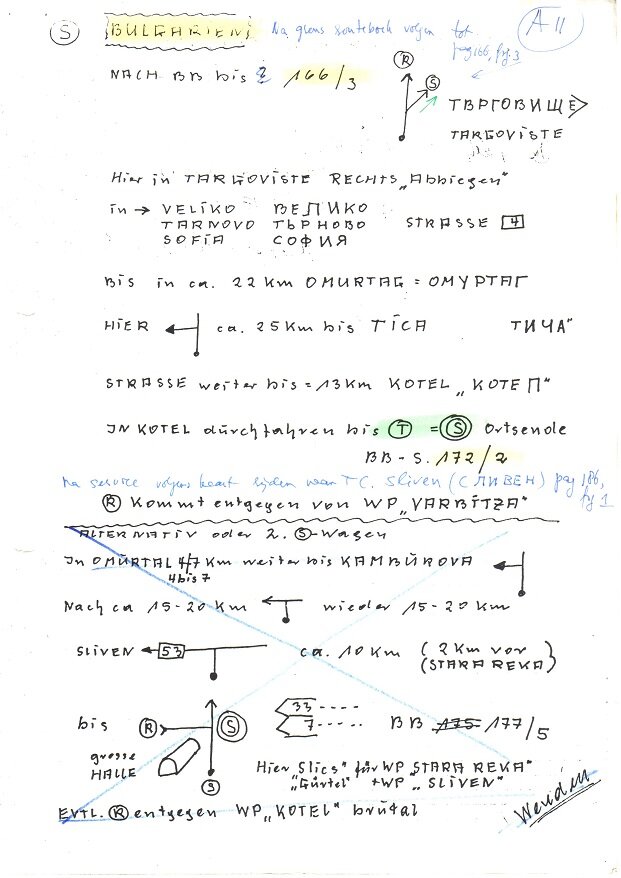 S BULGARIEN Na grens volgen tot A 11
pag 166, fig. 3
NACH BB bis 166/3 R S
ТЪРГОВИЩЕ
TARGOVISTE
Hier in TARGOVISTE RECHTS „Abbiegen"
in → VELIKO ВЕЛИКО
TARNOVO ТЪРНОВО STRASSE 4
SOFIA СОФИЯ
Bis in ca. 22 Km OMURTAG = ОМУРТАГ
HIER ca. 25 Km bis TICA ТИЧА"
STRASSE weiter bis = 13 Km KOTEL „КОТЕП"
IN KOTEL durchfahren bis T = S Ortsende
BB - S. 172/2
Na service volgens kaart rijden naar TC. Sliven (СЛИВЕН) pag 186, fig 1
R Kommt entgegen von WP „VARBITZA"
ALTERNATIV oder 2. S-Wagen
In OMURTAL 4/7 Km weiter bis KAMBUROVA
4 bis 7
Nach ca 15-20 Km wieder 15-20 Km
SLIVEN 53 ca. 10 Km (2 Km vor
(STARA REKA)
33 ----
bis R S 7 ---- BB 175 177/5
grosse
HALLE Hier Slics" für WP „STARA REKA"
S „Gürtel" + WP „SLIVEN"
EVTL. R entgegen WP „KOTEL" brutal
Wenden